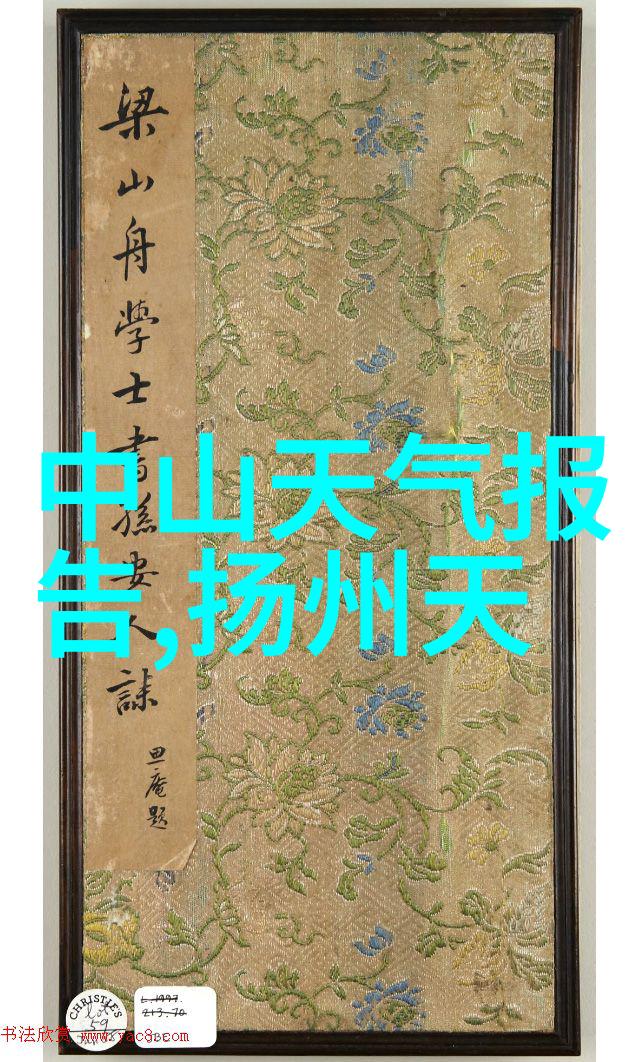 梁山舟學士書孫安人誄
思庵題
中山天气报
告,扬州天
CHRISTIE'S
Lot
59
L.1997.
213.70
书法欣赏 www.yac8.com